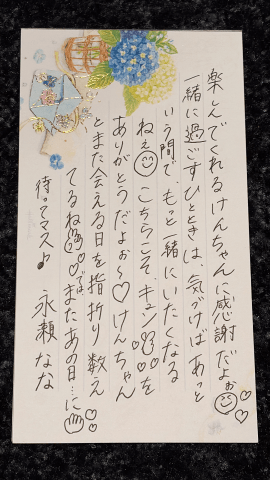 楽しんでくれるけんちゃんに感謝だよぉ
一緒に過ごすひとときは、気がけばあっと
いう間で、もっと一緒にいたくなる
ねぇ こちらこそ、キュン♡♡を
ありがとうだよぉ〜♡けんちゃん
とまた会える日を指折り数え
てるね♡♡ではまたあの日…に♡♡
待ってマス♪ 永瀬なな